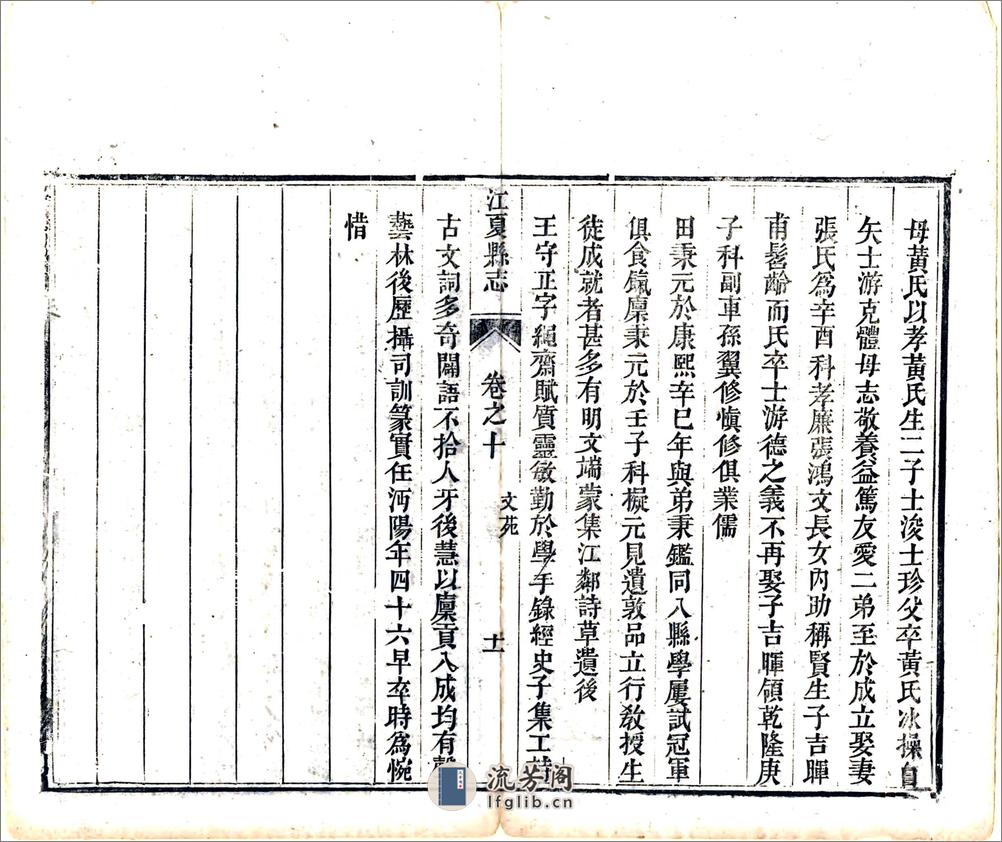 母黃氏以孝黃氏生二子士浚士珍父卒黃氏冰操自
矢士游克體母志敬養益篤友愛二弟至於成立娶妻
張氏爲辛酉科孝廉張鴻文長女內助稱賢生子吉暉
甫髫齡而氏卒士游德之義不再娶子吉暉領乾隆庚
子科副車孫翼修愼修俱業儒
田秉元於康熙辛巳年與弟秉鑑同入縣學屢試冠軍
俱食餼廩秉元於壬子科擬元見遺敦品立行敎授生
徒成就者甚多有明文端蒙集江鄰詩草遺後
王守正字繩齋賦質靈敏勤於學手錄經史子集工詩
江夏縣志 卷之十 文苑 十一
古文詞多奇闢語不拾人牙後慧以廩貢入成均有聲
藝林後歷攝司訓篆實任沔陽年四十六早卒時爲惋
惜
流芳阁
lfglib.cn